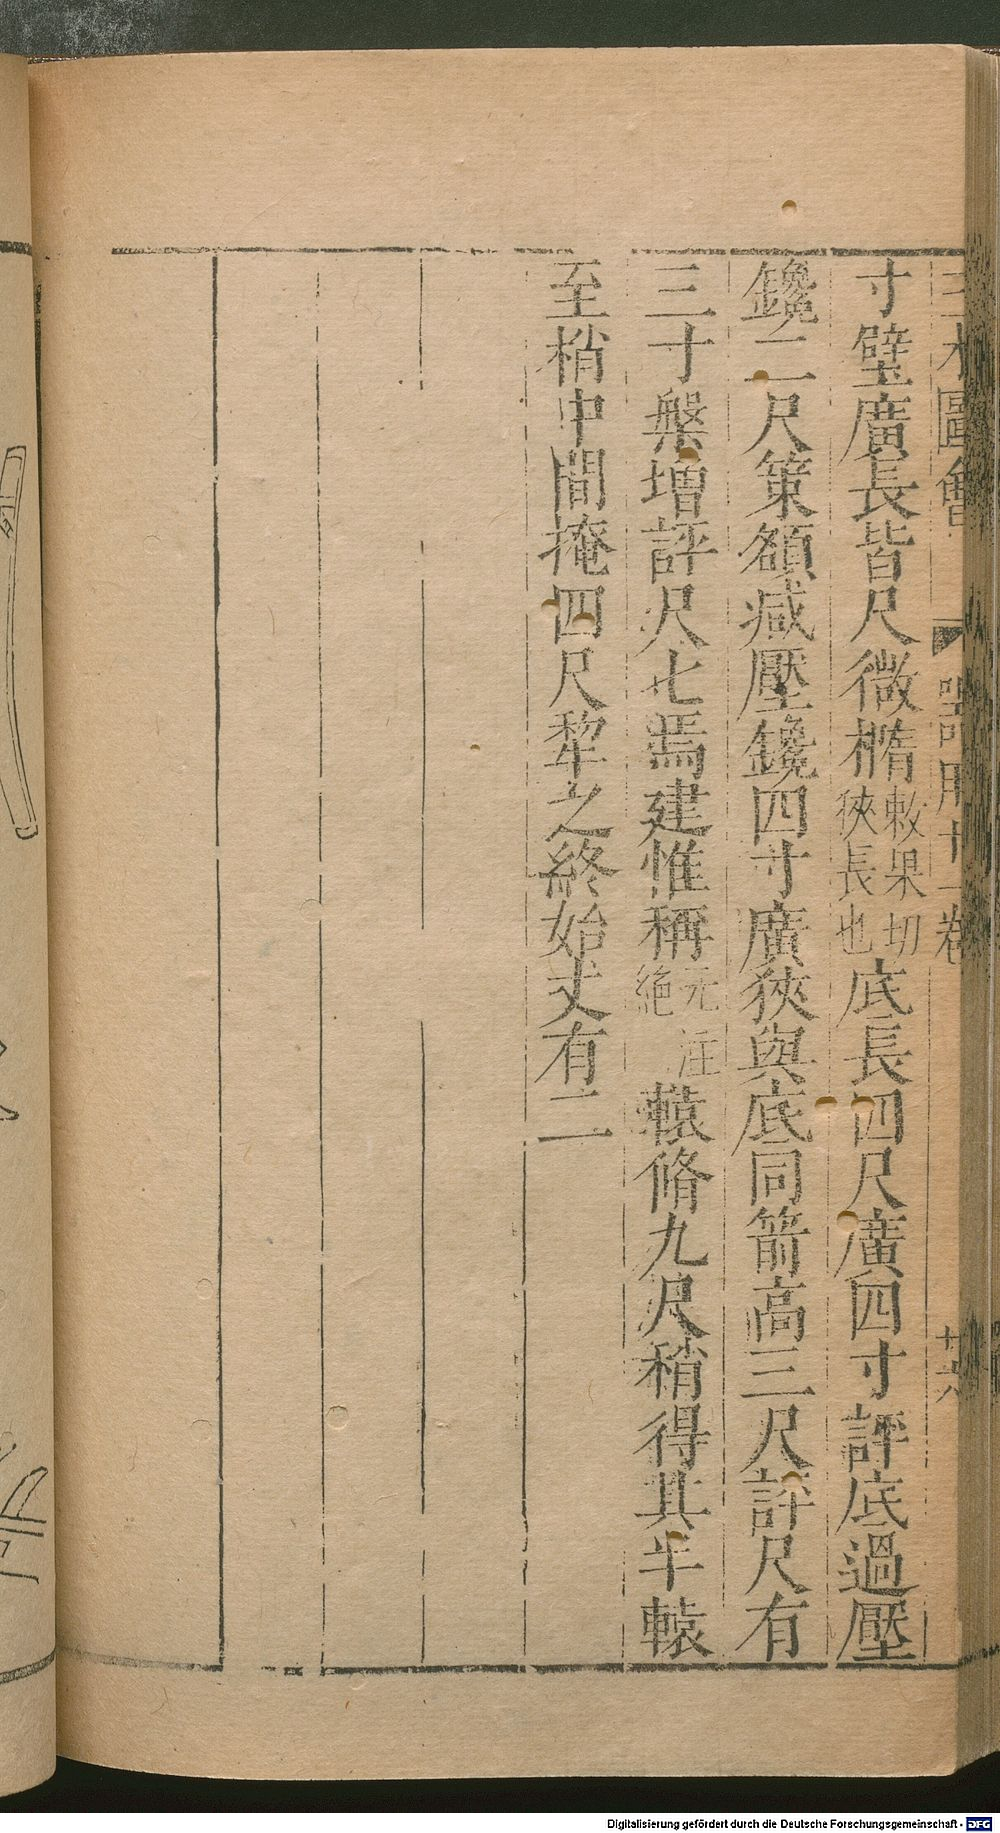 三才圖會 器用十一卷 廿六
寸壁廣長皆尺微橢敕果切狹長也底長四尺廣四寸評底過壓
鑱二尺策額減壓鑱四寸廣狹與底同箭高三尺評尺有
三寸槃增評尺七焉建惟稱元注絕轅脩九尺稍得其半轅
至梢中間掩四尺犂之終始丈有二
Digitalisierung gefördert durch die Deutsche Forschungsgemeinschaft - DFG